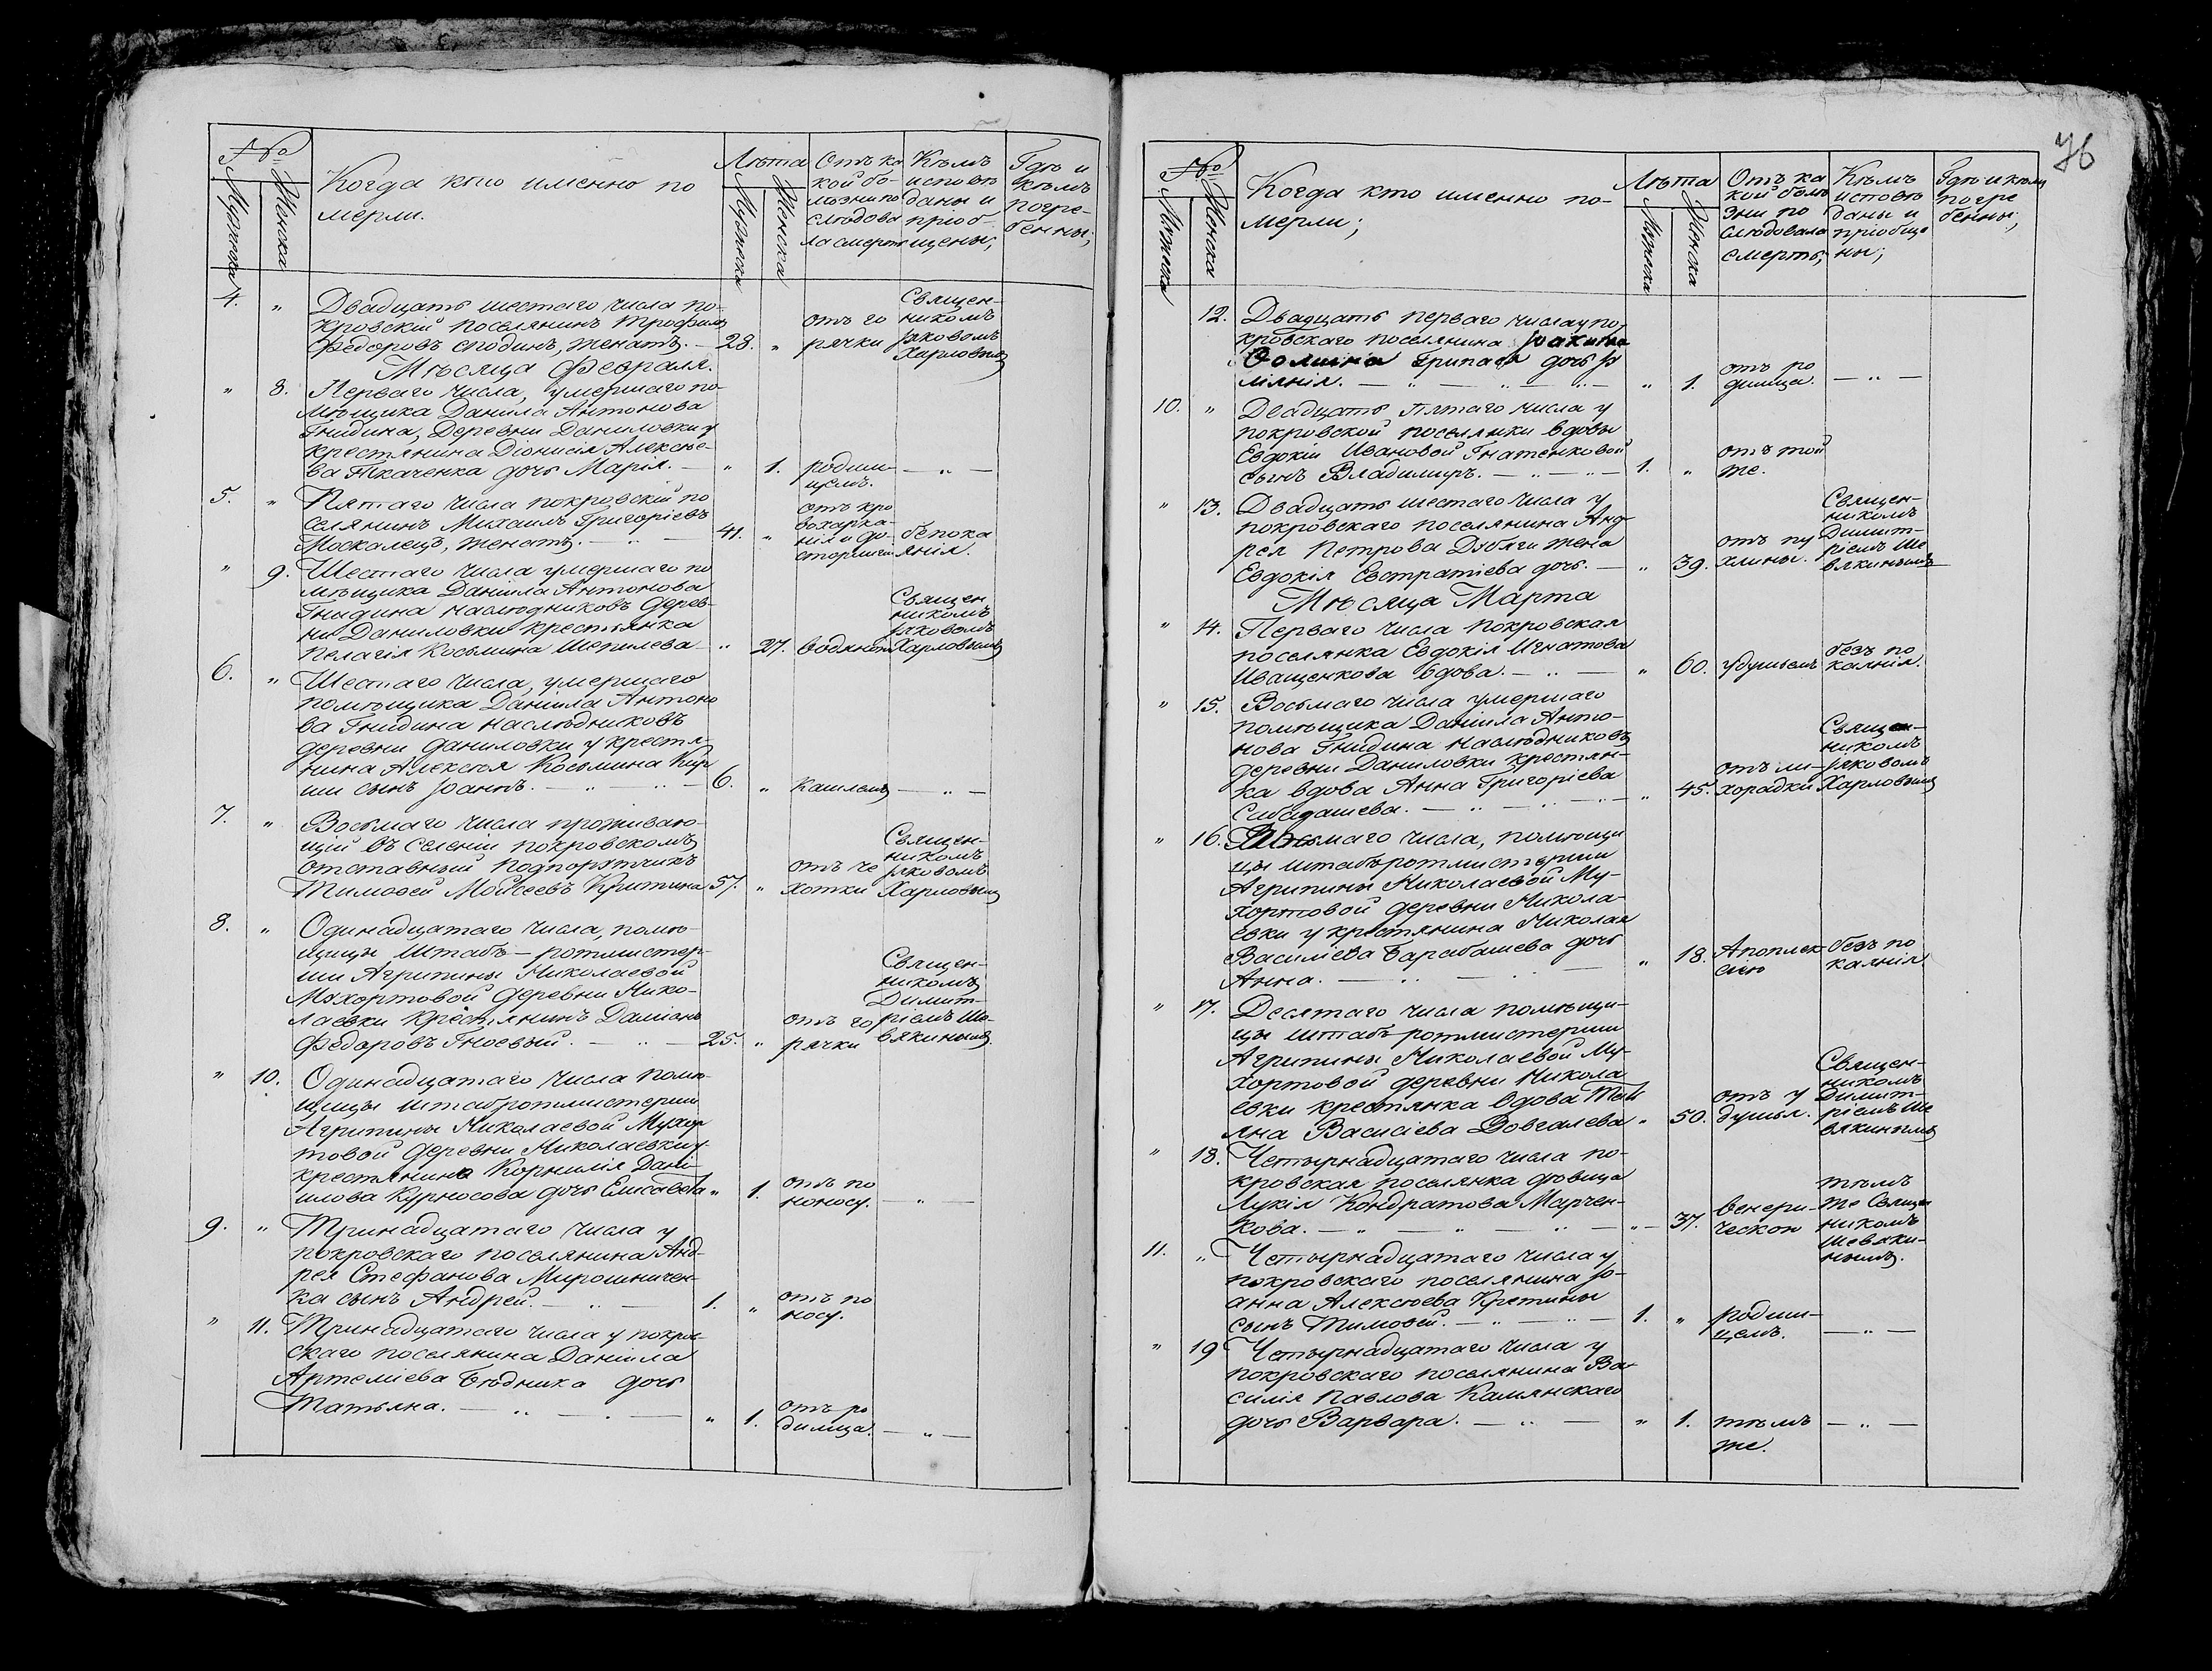 №
Мужеска
Женска
Когда кто именно по
мерли.
Лѣта
Мужеска
Женска
Отъ ка
кой бо-
лѣзни по
слѣдова
ла смерть
Кѣмъ
исповѣ
даны и
приоб-
щены;
Гдѣ и
кѣмъ
погре-
бенны;
4. „ Двадцать шестаго числа по-
кровскій поселянинъ Трофимъ
Федоровъ сподинъ, женатъ. — 28. „
отъ го
рячки
Священ-
никомъ
Іяковомъ
Харловымъ
Мѣсяца Февраля.
„ 8. Перваго числа, умершаго по-
мѣщика Данила Антонова
Гнидина, Деревни Даниловки у
крестянина Діонисія Алексѣе-
ва Ткаченка дочь Марія. — „ 1. родим- — „ —
цемъ.
5. „ Пятаго числа покровскій по
селянинъ Михаилъ Григоріевъ
Москалецъ, женатъ. — „ — 41. „
отъ кро
вохарка-
нія и до-
безпока
янія.
„ 9. Шестаго числа умершаго по
мѣщика Даніила Антонова
Гнидина наслѣдниковъ дерев-
ни Даниловки крестьянка
Пелагія Косьмина Шепилева „ 27. водяной
Священ
никомъ
Іяковомъ
Харловымъ
6. „ Шестаго числа, умершаго
помѣщика Даніила Антоно
ва Гнидина наслѣдниковъ
деревни даниловки у крестя-
нина Алексѣя Косьмина Кир
ши сынъ Іоаннъ. — „ — „ — 6. „ кашлемъ — „ —
7. „ Восьмаго числа проживаю-
щій въ селеніи покровскомъ
отставный подпорутчикъ
Тимофей Мойсеевъ Критина 57. „
отъ че
хотки
Священ-
никомъ
Іяковомъ
Харловымъ
8. „ Одинадцатаго числа, помѣ-
щицы Штабъ-ротмистер-
ши Агрипины Николаевой
Мухортовой деревни Нико-
лаевки крестянинъ Даміанъ
Федоровъ Гноевый. — „ — 25. „
отъ го
рячки
Священ-
никомъ
Димит-
ріемъ Ше-
вякинымъ
„ 10. Одинадцатаго числа помѣ-
щицы штабротмистерши
Агрипины Николаевой Мухор
товой деревни Николаевки у
крестянина Корнилія Дані-
илова Курносова дочь Елисавета „ 1.
отъ по
носу. — „ —
9. „ Тринадцатаго числа у
покровскаго поселянина Анд-
рея Стефанова Мирошничен-
ка сынъ Андрей. — „ — 1. „
отъ по
носу.
„ 11. Тринадцатаго числа у покров
скаго поселянина Даніила
Артеміева Бѣдника дочь
Татьяна. — „ — „ 1.
отъ ро
димца. — „ —
76
№
Мужеска
Женска
Когда кто именно по-
мерли;
Лѣта
Мужеска
Женска
Отъ ка
кой болѣ
зни по
слѣдовала
смерть;
Кѣмъ
исповѣ
даны и
приобще
ны;
Гдѣ и кѣмъ
погре
бенны;
12. Двадцать перваго числа у по-
кровскаго поселянина Іакима
Фомина Грипася дочь
— „ — „ — „ — „ 1.
отъ ро
димца. — „ —
10. „ Двадцать Пятаго числа у
покровской поселянки вдовы
Евдокіи Ивановой Гнатенковой
сынъ Владимиръ. — „ — „ — 1. „
отъ той
же.
„ 13. Двадцать шестаго числа у
покровскаго поселянина Анд-
рея Петрова Дубяги жена
Евдокія Евстратіева дочь. — „ 39.
отъ пу
хлины.
Священ-
никомъ
Димит-
ріемъ Ше
вякинымъ
Мѣсяца Марта
„ 14. Перваго числа Покровская
поселянка Евдокія Игнатова
Иващенкова вдова. — „ — „ 60. удушьемъ
безъ по
каянія.
„ 15. Восьмаго числа умершаго
помѣщика Даніила Анто-
нова Гнидина наслѣдниковъ
деревни Даниловки крестян-
ка вдова Анна Григоріева
Сибадашева. — „ — „ — „ 45.
отъ ли-
хорадки
Священ-
никомъ
Іяковомъ
Харловымъ
„ 16. Восьмаго числа, помѣщи
цы штабъротмистерши
Агрипины Николаевой Му-
хортовой деревни Никола-
евки у крестянина Николая
Василіева Барабашева дочь
Анна. — „ — „ — „ 18. Апоплек-
сіею
безъ по
каянія.
„ 17. Десятаго числа помѣщи-
цы штабъ ротмистерши
Агрипины Николаевой Му-
хортовой деревни Никола
евки крестянка вдова Тать
яна Василіева Довгалева „ 50.
отъ у
душья.
Священ-
никомъ
Димит-
ріемъ Ше
вякинымъ
„ 18. Четырнадцатаго числа по-
кровская поселянка дѣвица
Лукія Кондратова Марчен-
кова. — „ — „ — „ — „ — 37.
венери-
ческои
тѣмъ
же Священ
никомъ
Шевяки-
нымъ.
11. „ Четырнадцатаго числа у
покровскаго поселянина Іо-
анна Алексѣева Кретины
сынъ Тимофей. — „ — „ — 1. „ родим-
цемъ. — „ —
„ 19 Четырнадцатаго числа у
покровскаго поселянина Ва-
силія Павлова Камянскаго
дочь Варвара. — „ — „ 1. тѣмъ — „ —
же.